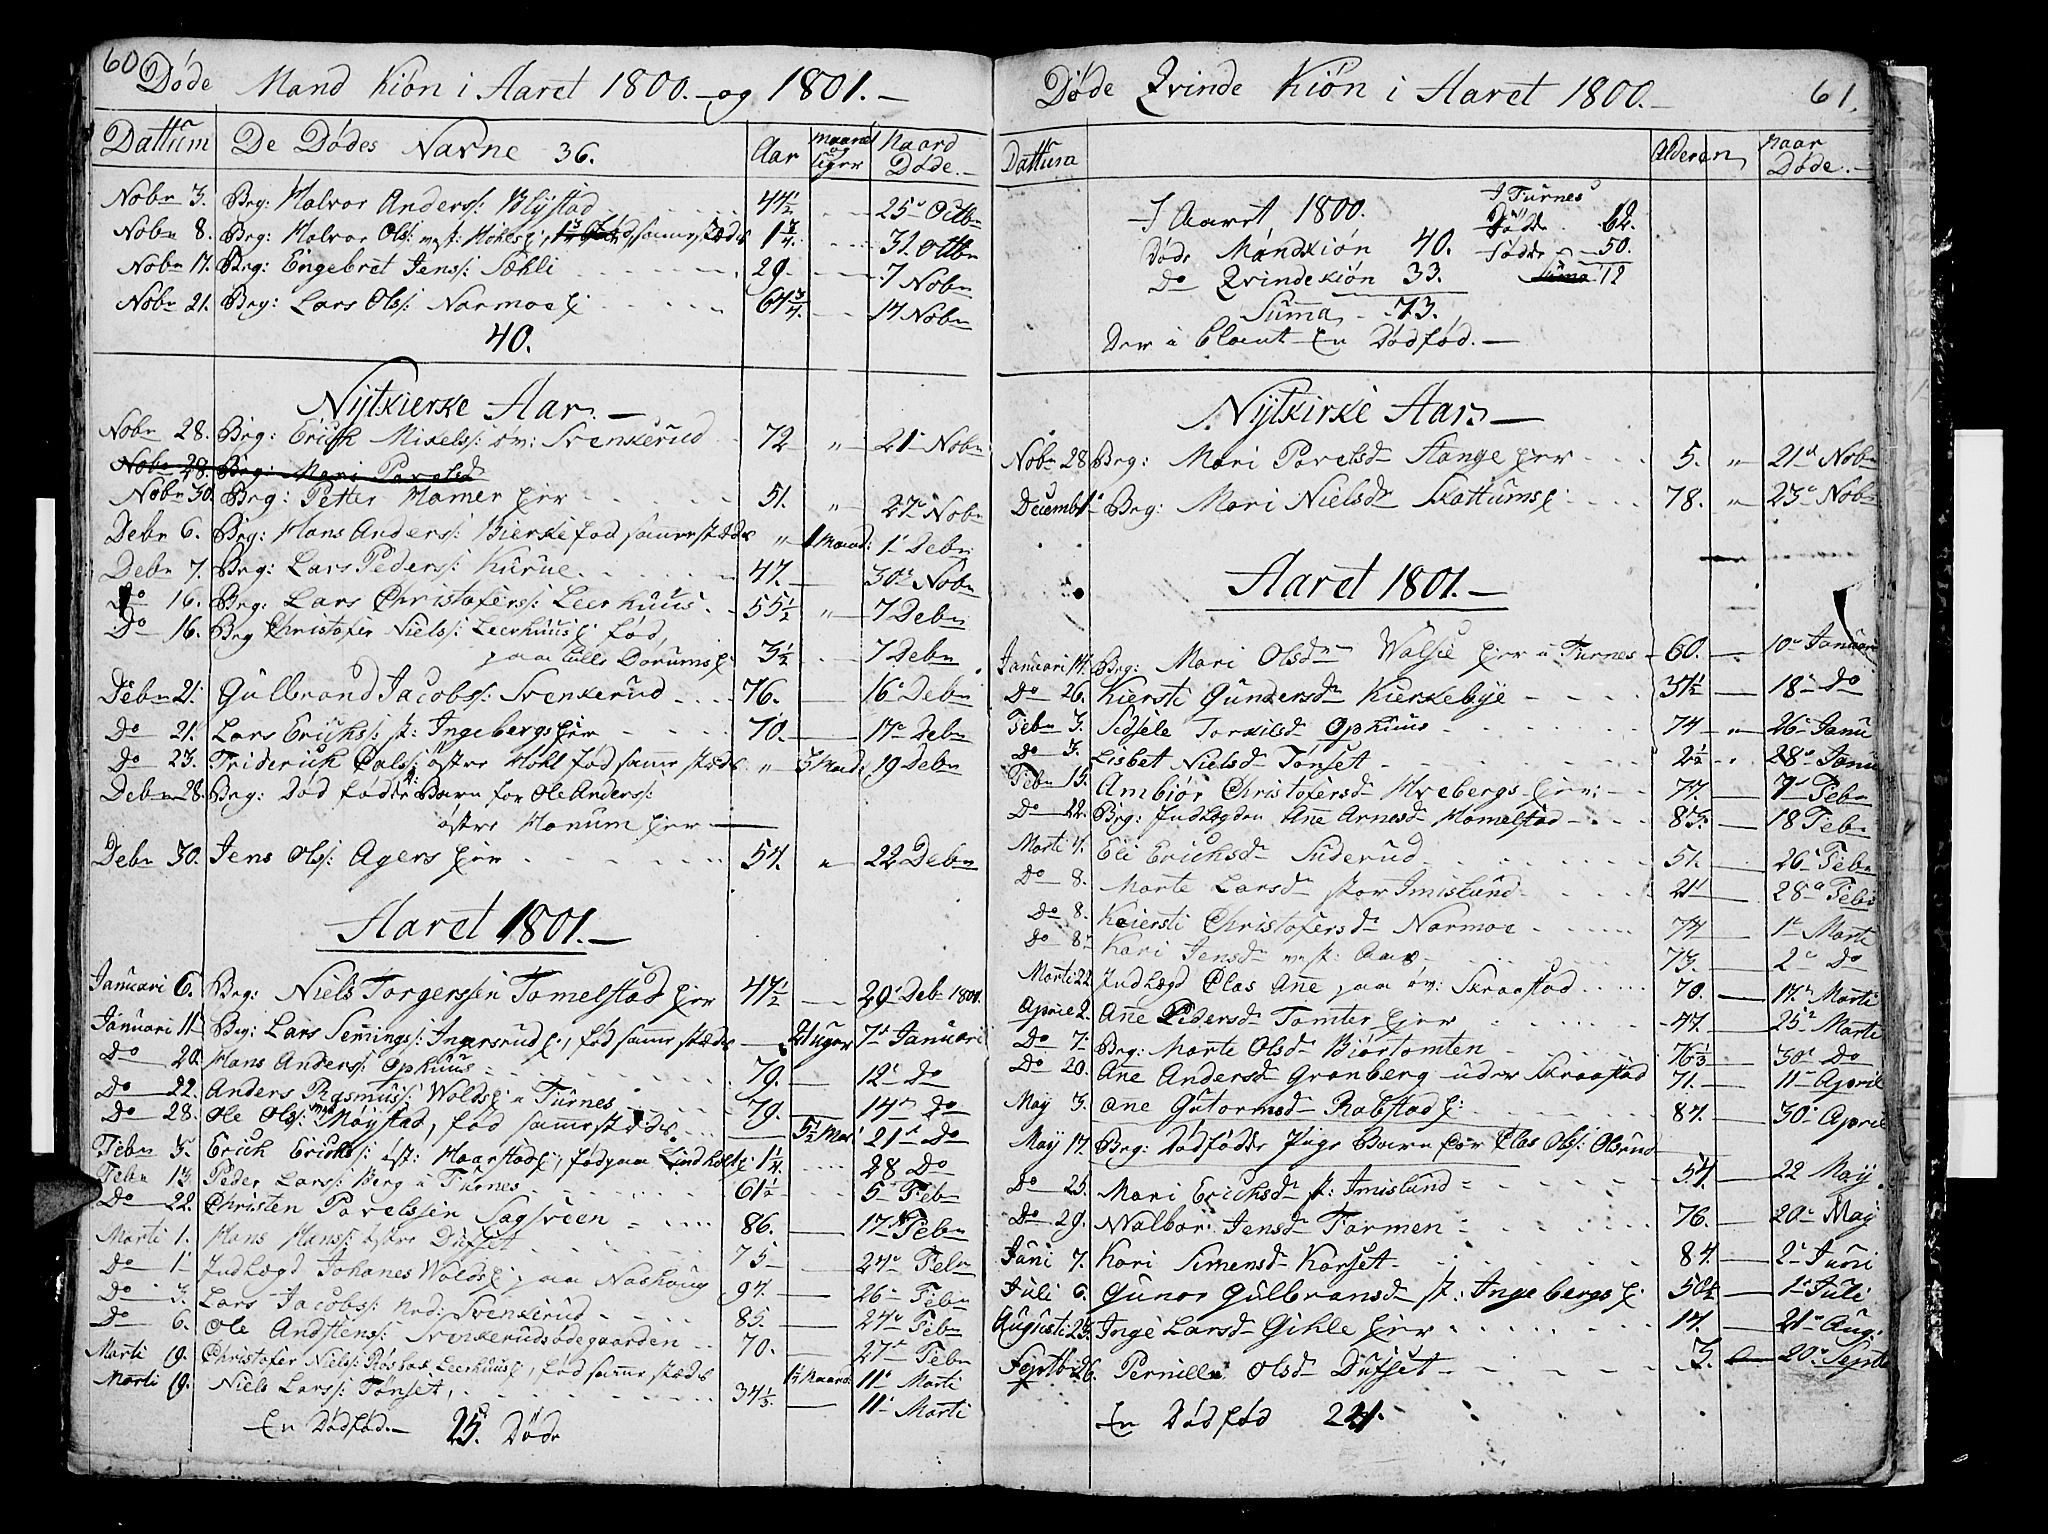 60 Døde Mand Kiøn i Aaret 1800. og 1801.
Dattum De Dødes Navne 36. Aar Maaned og Uger Naard Døde.
Nobr 3. Brg: Halvor Anderss: Blÿstad 44½ 25de Octbr
Nobr 8. Brg: Halvor Olss: 1¾ 31. Octbr
Nobr 17. Brg: Engebret Jenss: Sæhli 29. 7 Nobr
Nobr 21. Brg: Lars Olss: Narmoe 64¾ 14 Nobr
40.
Nÿtkierke Aar.
Nobr 28. Brg: Erich Mikelss: öv: Svenkerud 72 21 Nobr
Nobr 28. Brg: Mari Povelsd
Nobr 30. Brg: Petter Hamer Eier 51. 27 Nobr
Debr 6. Brg: Hans Anderss: Bierke fød sammestædes 1 Maand: 1 Debr
Debr 7. Brg: Lars Pederss: Kurue 47. 30 Nobr
Do 16. Brg: Lars Christoferss: Leerhuus 55½ 7 Debr
Do 16. Brg Christofer Nielss: Leerhuus fød,
paa Lille Dorum 3½ 7 Debr
Debr 21. Gulbrand Jacobss: Svenkerud 76. 16 Debr
Do 21. Lars Erichss: st: Ingebergs Eier 70. 17 Debr
Do 23. Friderich Palss: østre Hohl fød samestæds 3 Maad: 19 Debr
Debr 28. Brg: Død fødde Barn for Ole Anderss:
østre Honum Eier
Debr 30. Jens Olss: Agers Eier 54. 22 Debr
Aaret 1801.
Januari 6. Brg: Niels Torgerssen Tomelstad Eier 47½ 29 Debr 1801.
Januari 11 Brg: Lars Semingss: Ingersrud, fød samestædes 7 Januari
Do 20. Hans Anderss: Ophuus 79. 12 Do
Do 22. Anders Rasmuss: Wolds i Furnes 79. 14 Do
Do 28. Ole Olss: Møÿstad, fød samestædes 5½ Mar 21 Do
Febr 5. Erich Erichss: øst: Haarstad, fød paa 1¼ 28 Do
Febr 13. Peder Larss: Berg i Furnes 61½ 5 Febr
Do 22. Christen Povelssen Sagsveen 86. 17 Febr
Marti 1. Hans Hanss: østre Dufset 75 24 Febr
Do 1 Indlægd Johanes Wolds paa Nashaug 97. 26 Febr
Do 3. Lars Jacobss: Nrd: Svenkerud 85. 24 Febr
Do 6. Ole Andstenss: Svenkerudsødegaarden 70. 27 Febr
Marti 19. Christofer Nielss: Leerhuus, fød samestædes 11 Marti
Marti 19. Niels Larss: Tønset, 34⅓ 11 Marti
En Dødfød. 25. Døde
Døde Qvinde Kiøn i Aaret 1800. 61.
Dattum Alderen Naar Døde.
I Aaret 1800. I Furnes
Døde Mandkiøn 40. Døde 62.
Do Qvindekiøn 33. Fødde 50.
Suma 73. Suma 12
Der i blant En Dødfød.
Nÿtkirke Aar.
Nobr 28 Brg: Mari Povelsdr Stange Eier 5. 21 Nobr
Decembr 1 Brg: Mari Nielsdr Skattums 78. 23 Nobr
Aaret 1801.
Januari 14. Brg: Mari Olsdr Wolse Eier i Furnes 60. 10 Januari
Do 26. Kiersti Gundersdr Kierkebÿe 31½ 18 Do
Febr 3. Sidsele Torkilsd Ophuus 74 26 Janu
Do 3. Lisbet Nielsd Tønset 2½ 28 Janu
Febr 15. Ambiør Christofersdr Hvebergs Eier: 77. 7 Febr
Do 22. Brg: Indlægden Ane Arnesd Homelstad 83. 18 Febr
Marti 4. Eli Erichsdr Suderud 51. 26 Febr
Do 8. Marte Larsdr stor Imislund 21 28 Febr
Do 8. Kiersti Christofersdr Narmoe 74 1 Marti
Do 8 Kari Jensdr vest: Aas 73. 2 Do
Marti 22 Indlægd Clas Ane paa öv: Skraastad 70. 17 Marti
Aprie 2. Ane Pedersdr Tomter Eier 47. 25 Marti
Do 7. Brg: Marte Olsdr Biørtomten 76⅓ 30 Do
Do 20. Ane Andersdr Gronberg under Skraastad 71. 11 April
Maÿ 3. Ane Gutormsdr Robstad 84. 30 April
Maÿ 17. Brg: Dødfødde Pige Barn for Clas Olss: Olsrud
Do 25. Mari Erichsdr st: Imislund 54. 22 Maÿ
Do 29. Wolbor Jensdr Farmen 76. 20 Maÿ
Juni 7. Kari Simensdr Korset 84. 2 Juni
Juli 6. Gunor Gulbransdr st: Ingebergs 50½ 1 Juli
Augusti 25. Inge Larsdr Gihle Eier 17. 21 Aug:
Septbr 26. Pernille Olsdr Dufset 3. 20 Septb
En Dødfød 24.